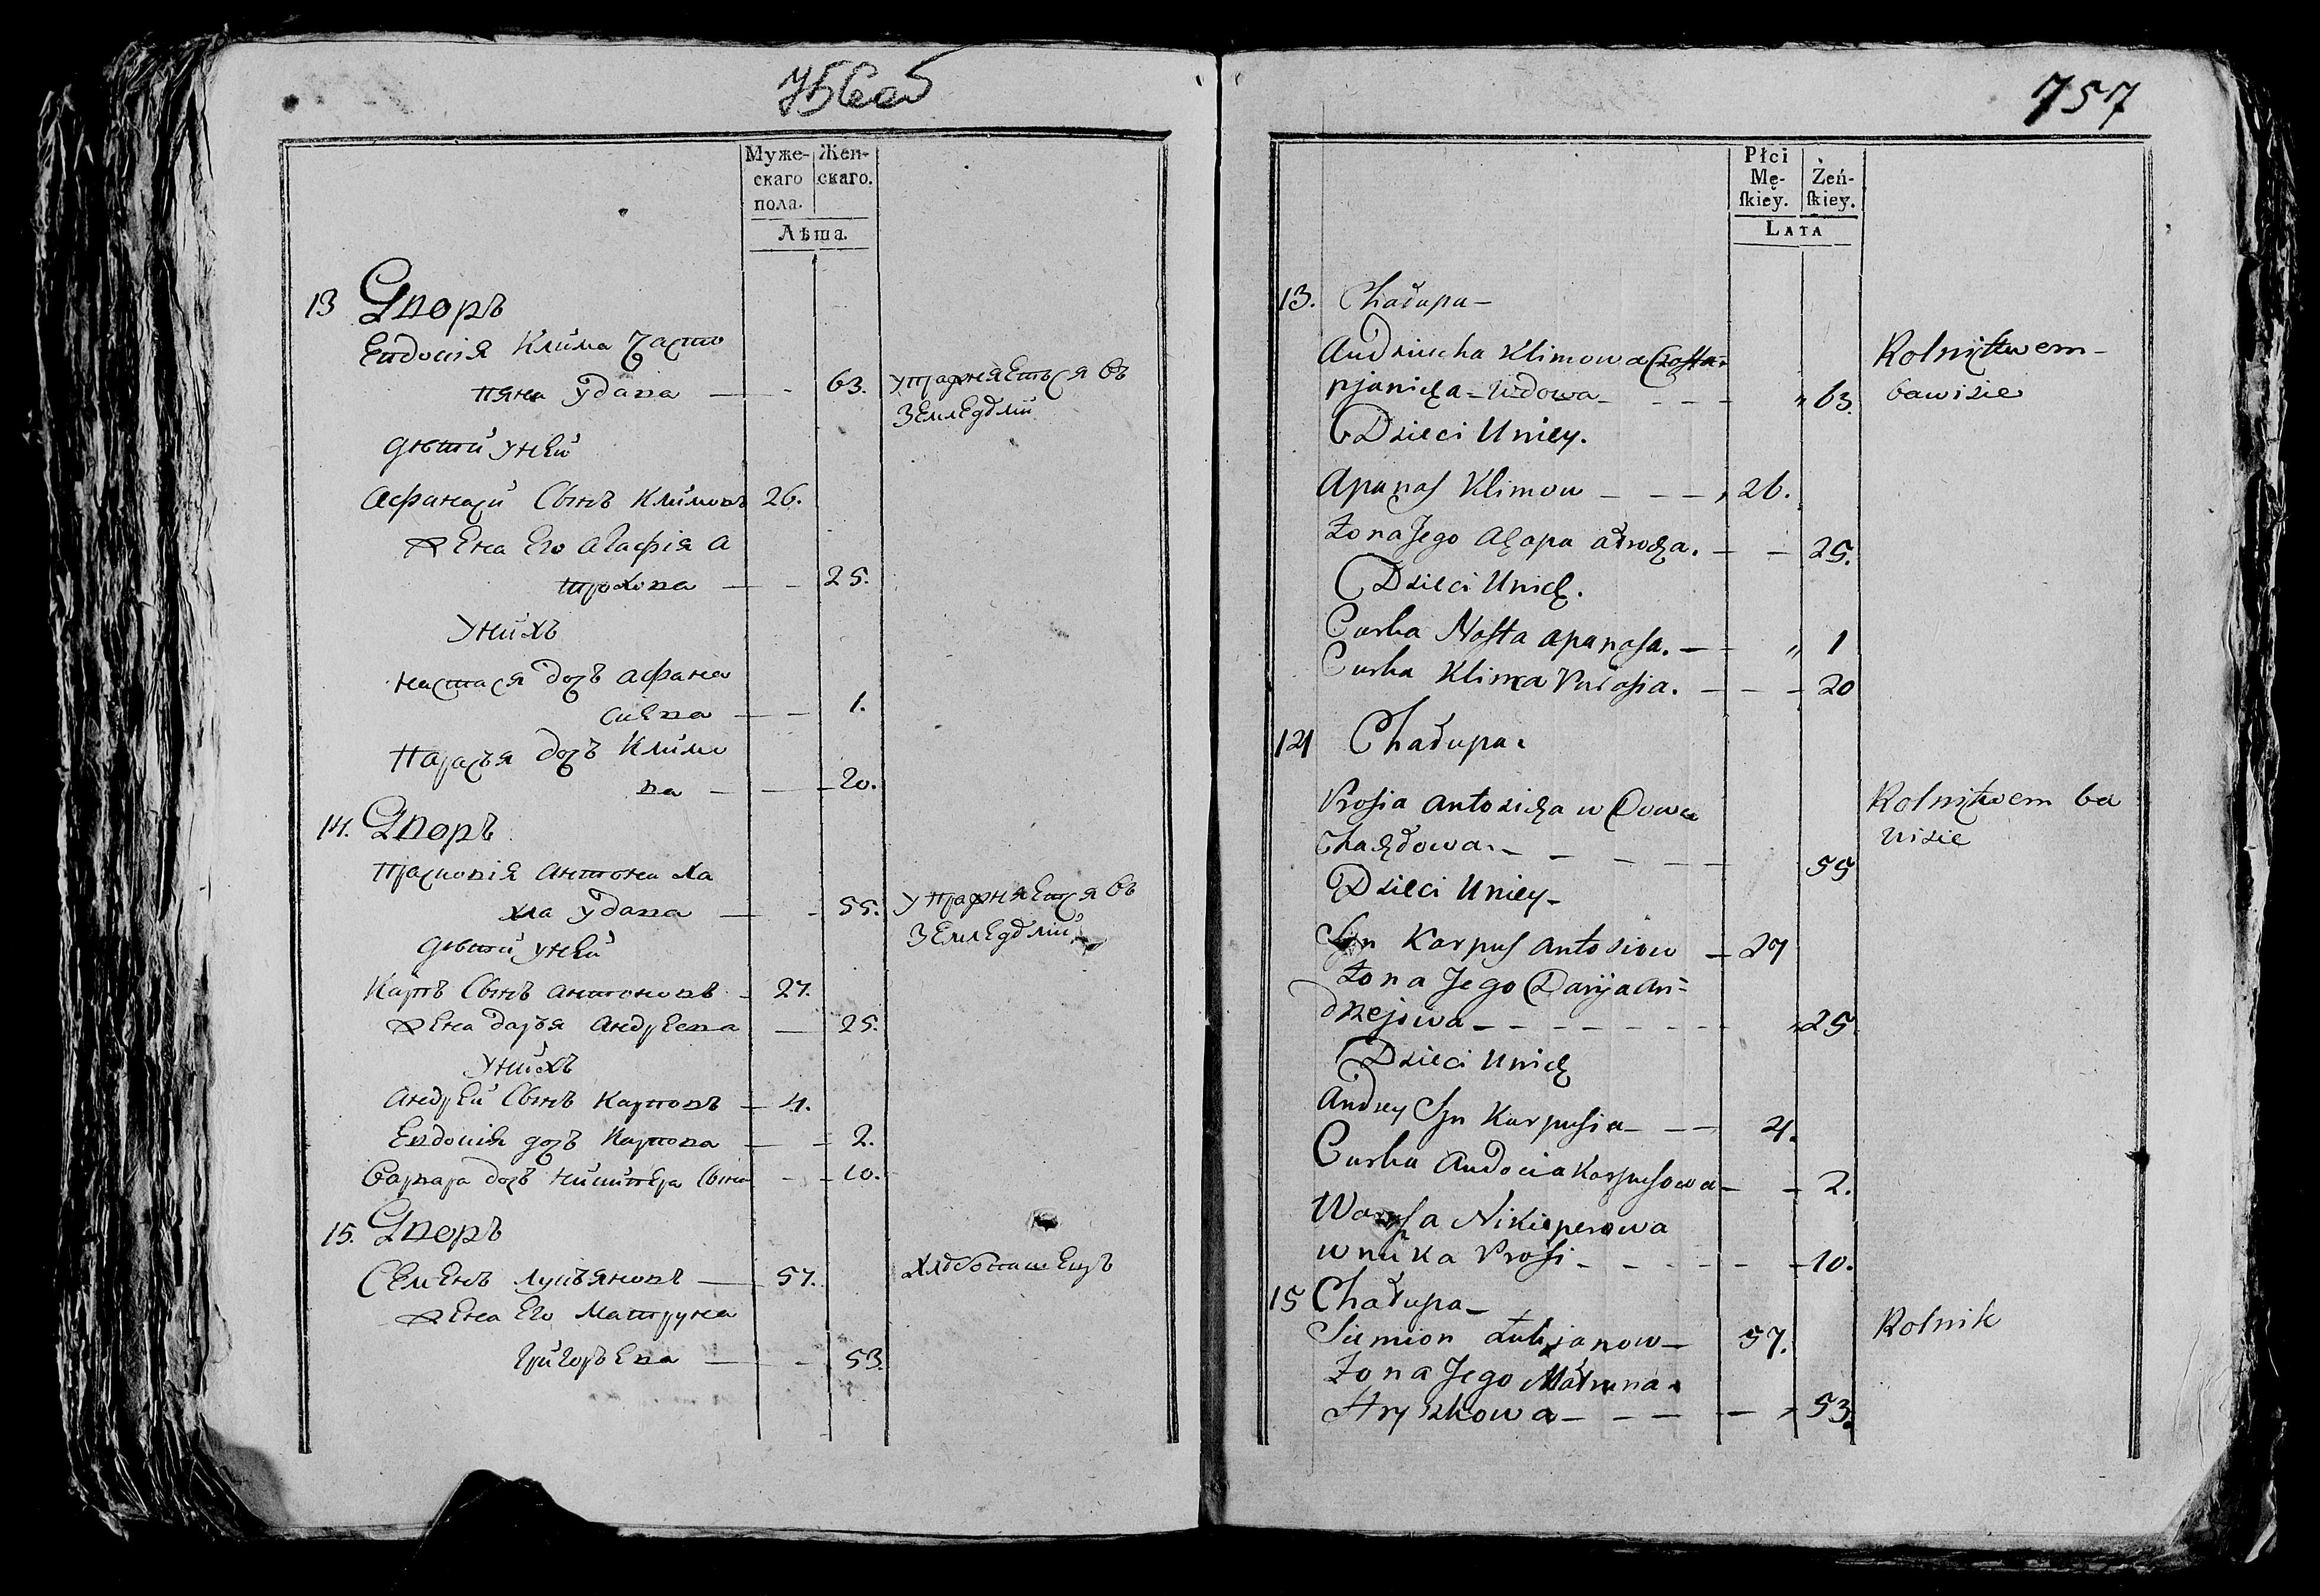 756 об
Муже-
скаго
пола.
Жен-
скаго.
Лѣта.
13 Дворъ
Евдокія Клима Часто
пяна удава — 63. упражняеться въ
земледѣліи
дѣти у ней
Афанасіи сынъ Климовъ 26.
Жена его Агафія А
трохова — 25.
У нихъ
Настася дочь Афана
сиева — 1.
Парасья дочь Климо
ва — 20.
14. Дворъ
Прасковія Антона
удава — 55. упражняется въ
земледѣліи
дѣти у ней
Карпъ сынъ Антоновъ 27.
Жена Дарья Андреева — 25.
У нихъ
Андрей сынъ Карповъ — 4.
Евдокія дочь Карпова — 2.
Варвара дочь — 10.
15. Дворъ
Семенъ Лукъяновъ — 57. хлѣбопашецъ
Жена его Матруна
Григорьева — 53.
757
Płci
Mę-
skiey.
Żeń-
skiey.
LATA
13. Chałupa —
Klimowa Rolnictwem —
pjanicha — wdowa — 63. bawi sie
Dzieci Uniey.
Apanas Klimow — 26.
Żona Jego Agapa — 25.
Dzieci Unich.
Curka Nasta Apanasa. — 1
Curka Klima Parasia. — 20
14 Chałupa.
Prosia Antosicha wdowa Rolnictwem ba
wi sie
55
Dzieci Uniey —
Syn Karpus Antosiow — 27
Żona Jego Darija An-
drzejowa — 25
Dzieci Unich
Andrey Syn Karpusia — 4.
Curka Audocia Karpusowa — 2.
Nikieperowa
wnuka Prosi — 10.
15 Chałupa —
Siemion Łukjanow — 57. Rolnik
Żona Jego Matruna
Hryszkowa — 53.